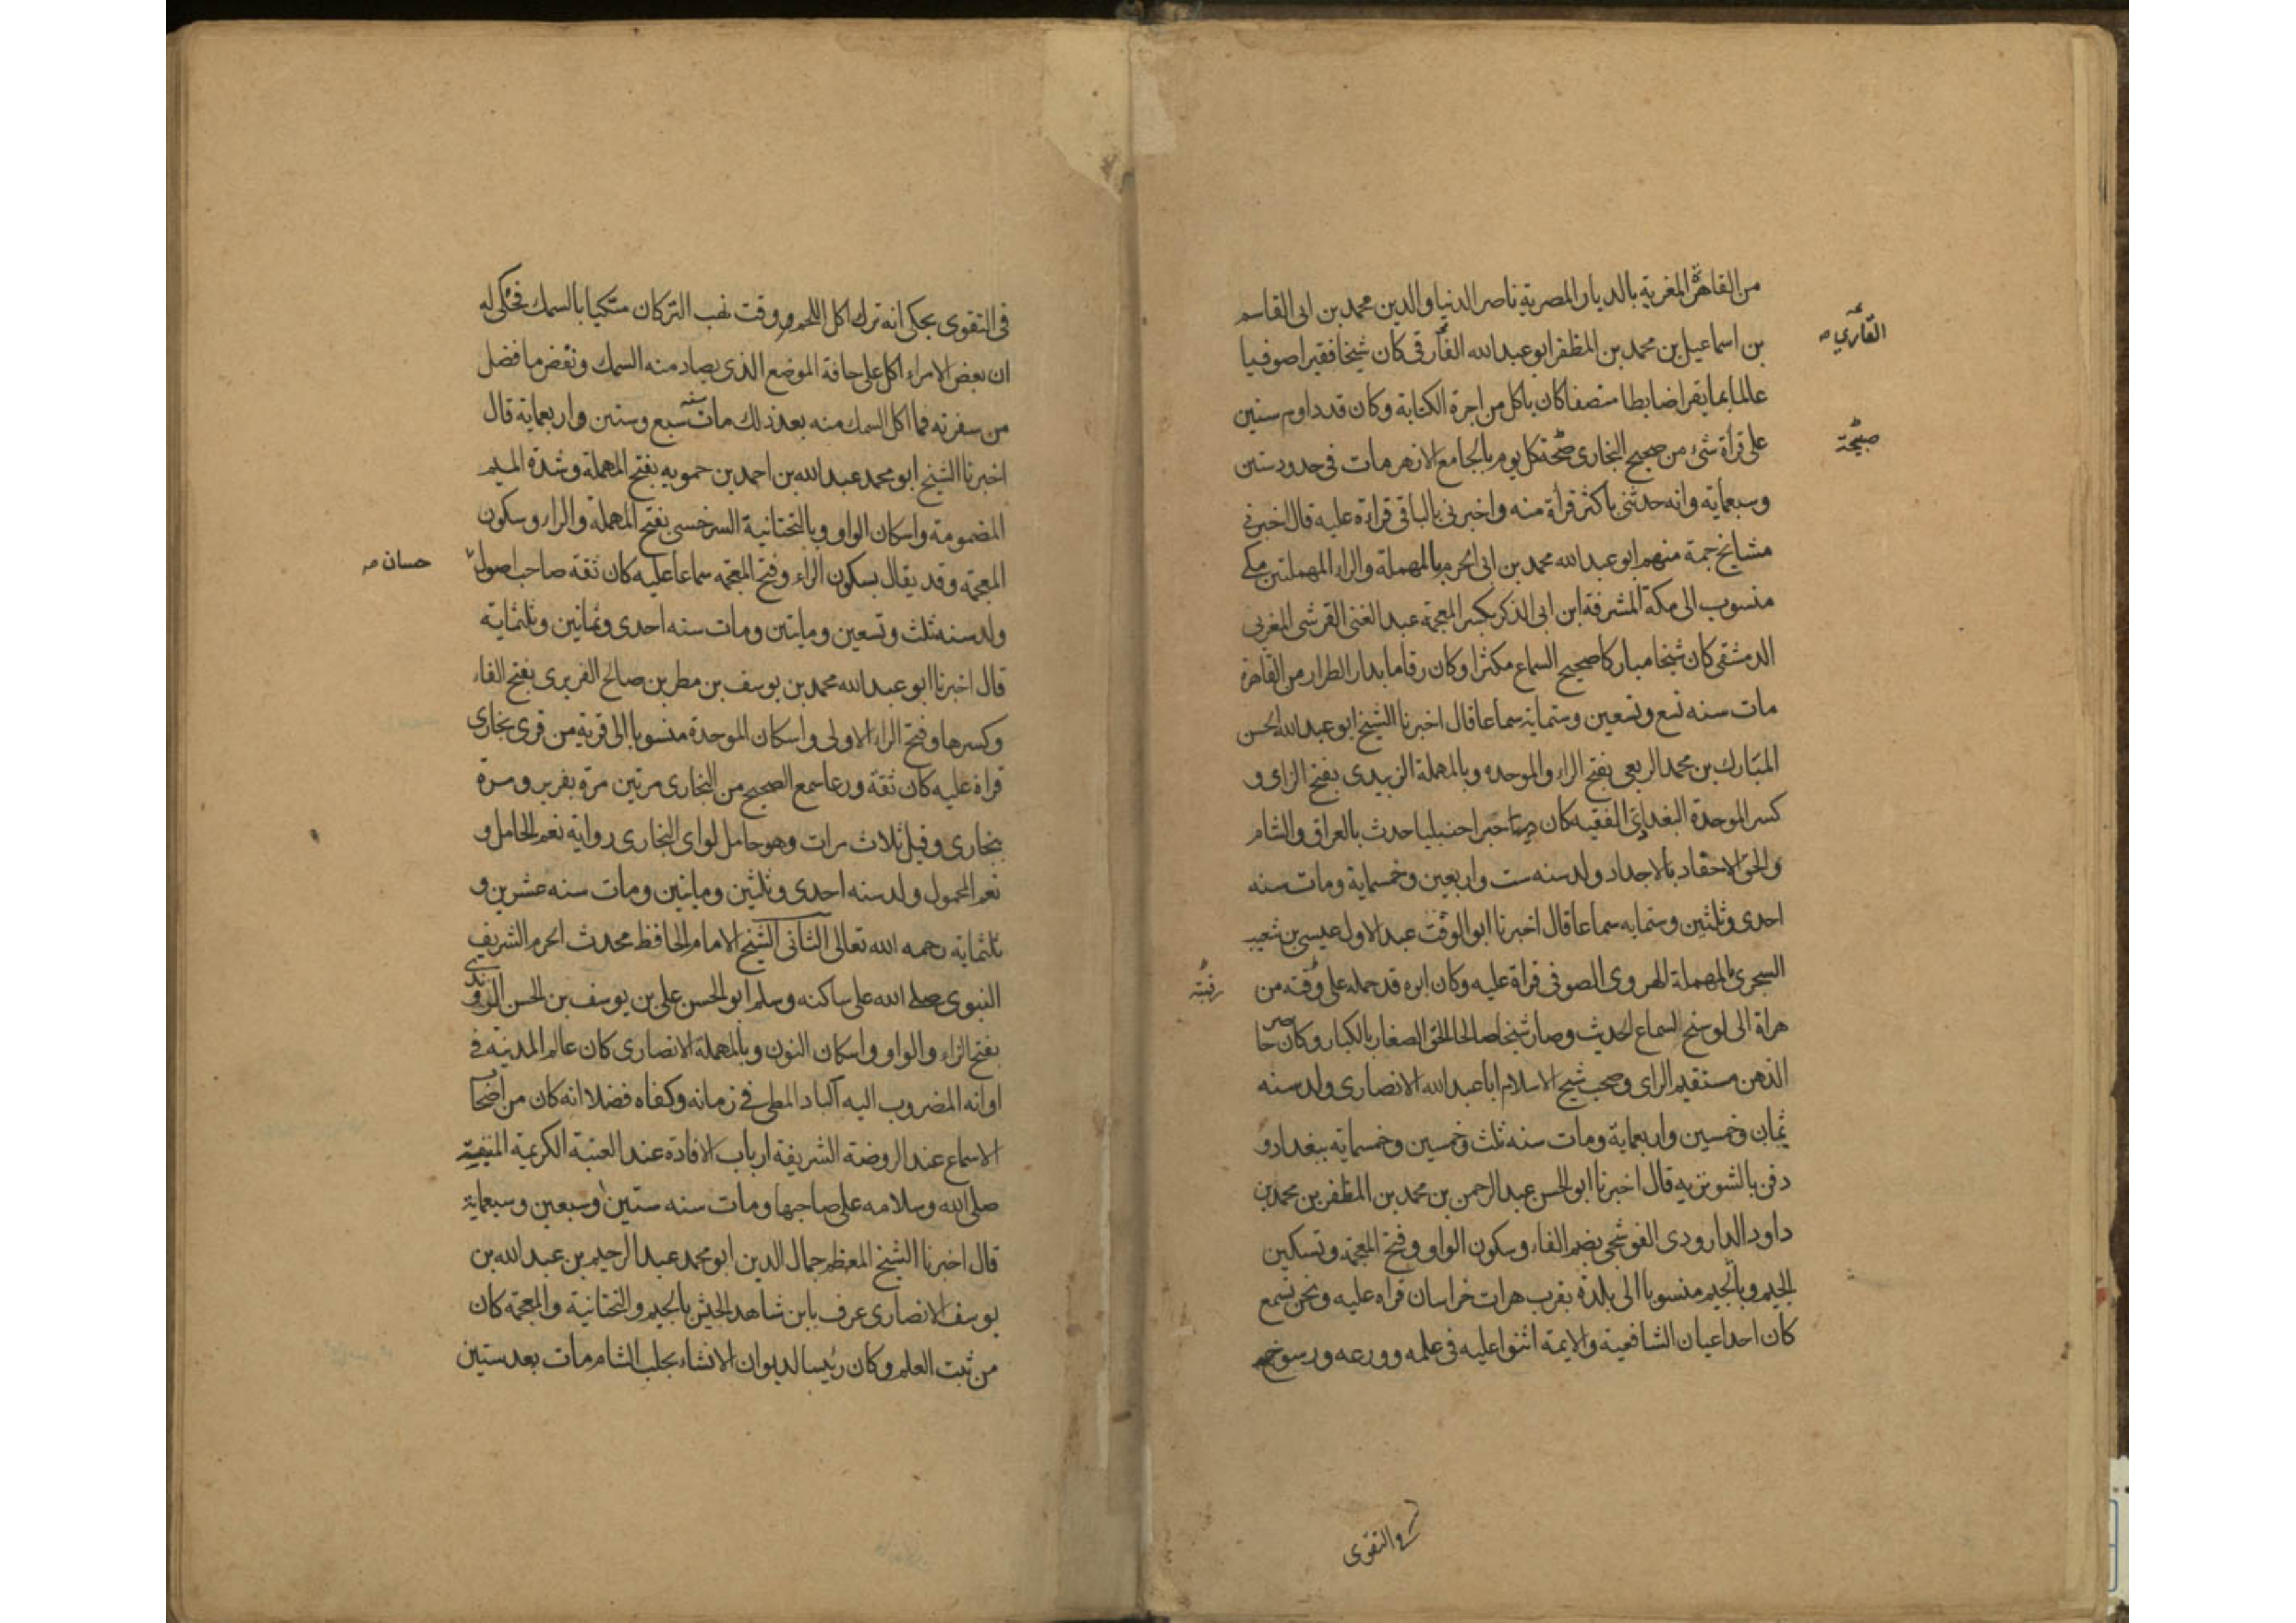 من القاهرة المغربة بالديار المصرية ناصر الدنيا والدين محمد بن ابى القاسم
بن اسماعيل بن محمد بن المظفر ابو عبد الله الفارقى كان شيخا فقيرا صوفيا
القارى صح
عالما بما يقرا ضابطا متصفا كان ياكل من اجرة الكتابة وكان قد داوم سنين
على قراة شئ من صحيح البخارى صبحة كل يوم بالجامع الازهر مات فى حدود ستين
صبيحة
وسبعماية وانه حدثنى باكثر قراة منه واخبرنى بالباقى قراءة عليه قال اخبرنى
مشايخ جمة منهم ابو عبد الله محمد بن ابى الحرم بالمهملة والراء المهملتين مكى
منسوب الى مكة المشرفة ابن ابى الذكر بكسر المعجمة عبد الغنى القرشى المغربى
الدمشقى كان شيخا مباركا صحيح السماع مكثرا وكان رقاما بدار الطراز من القاهرة
مات سنه تسع وتسعين وستماية سماعا قال اخبرنا الشيخ ابو عبد الله الحسن
المبارك بن محمد الربعى بفتح الراء والموحده وبالمهملة الزبيدى بفتح الزاى و
كسر الموحدة البغدادى الفقيه كان حبرا حنبليا حدث بالعراق والشام
والحق الاحفاد بالاجداد ولد سنه ست واربعين وخمسماية ومات سنه
احدى وثلثين وستمايه سماعا قال اخبرنا ابو الوقت عبد الاول عيسى بن شعيب
السجزى بالمهملة الهروى الصوفى قراة عليه وكان ابوه قد حمله على وقته من
رقبته
هراة الى لوسنج لسماع الحديث وصار شيخا صالحا الحق الصغار بالكبار وكان حاضر
الذهن مستقيم الراى وصحب شيخ الاسلام ابا عبد الله الانصارى ولد سنه
ثمان وخمسين واربعماية ومات سنه ثلث وخمسين وخمسمايه ببغداد و
دفن بالشونزيه قال اخبرنا ابو الحسن عبد الرحمن بن محمد بن المظفر بن محمد بن
داود الداودى الفوشنجى بضم الفاء وسكون الواو وفتح المعجمة وتسكين
الجيم وبالجيم منسوبا الى بلدة بقرب هرات خراسان قراه عليه ونحن نسمع
كان احد اعيان الشافعية والايمة اثنوا عليه فى علمه وورعه ورسوخه
فى التقوى
فى التقوى يحكى انه ترك اكل اللحم وقت نهب التركان متكيا بالسمك فحكى له
ان بعض الامراء اكل على حافة الموضع الذى يصاد منه السمك ونفض ما فضل
من سفرته فما اكل السمك منه بعد ذلك مات سنه سبع وستين واربعماية قال
اخبرنا الشيخ ابو محمد عبد الله بن احمد بن حمويه بفتح المهملة وشدة الميم
المضمومة واسكان الواو وبالتحتانية السرخسى بفتح المهملة والراء وسكون
المعجمة وقد يقال بسكون الراء وفتح المعجمة سماعا عليه كان ثقة صاحب اصول
حسان صح
ولد سنه ثلث وتسعين ومايتين ومات سنه احدى وثمانين وثلثماية
قال اخبرنا ابو عبد الله محمد بن يوسف بن مطر بن صالح الفربرى بفتح الفاء
وكسرها وفتح الراء الاولى واسكان الموحدة منسوبا الى قرية من قرى بخارى
قراة عليه كان ثقة ورعا سمع الصحيح من البخارى مرتين مرة بفربر ومرة
ببخارى وقيل ثلاث مرات وهو حامل لواى البخارى رواية نعم الحامل و
نعم المحمول ولد سنه احدى وثلثين ومايتين ومات سنه عشرين و
ثلثماية رحمه الله تعالى الثانى الشيخ الامام الحافظ محدث الحرم الشريف
النبوى صلى الله على ساكنه وسلم ابو الحسن على بن يوسف بن الحسن الزرندى
بفتح الزاء والواو واسكان النون وبالمهملة الانصارى كان عالم المدينه فى
اوانه المضروب اليه آكباد المطى فى زمانه وكفاه فضلا انه كان من اضحا
الاسماع عند الروضة الشريفة ارباب الافادة عند العتبة الكريمة المنيفة
صلى الله وسلامه على صاحبها ومات سنه ستين وسبعين وسبعماية
قال اخبرنا الشيخ المعظم جمال الدين ابو محمد عبد الرحيم بن عبد الله بن
يوسف الانصارى عرف بابن شاهد الجيش بالجيم والتحتانية والمعجمة كان
من ثبت العلم وكان رئيسا لديوان الانشاء بحلب الشام مات بعد ستين